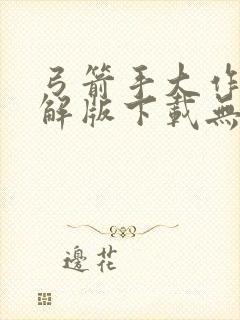 弓箭手大作
解版下載無
邊花